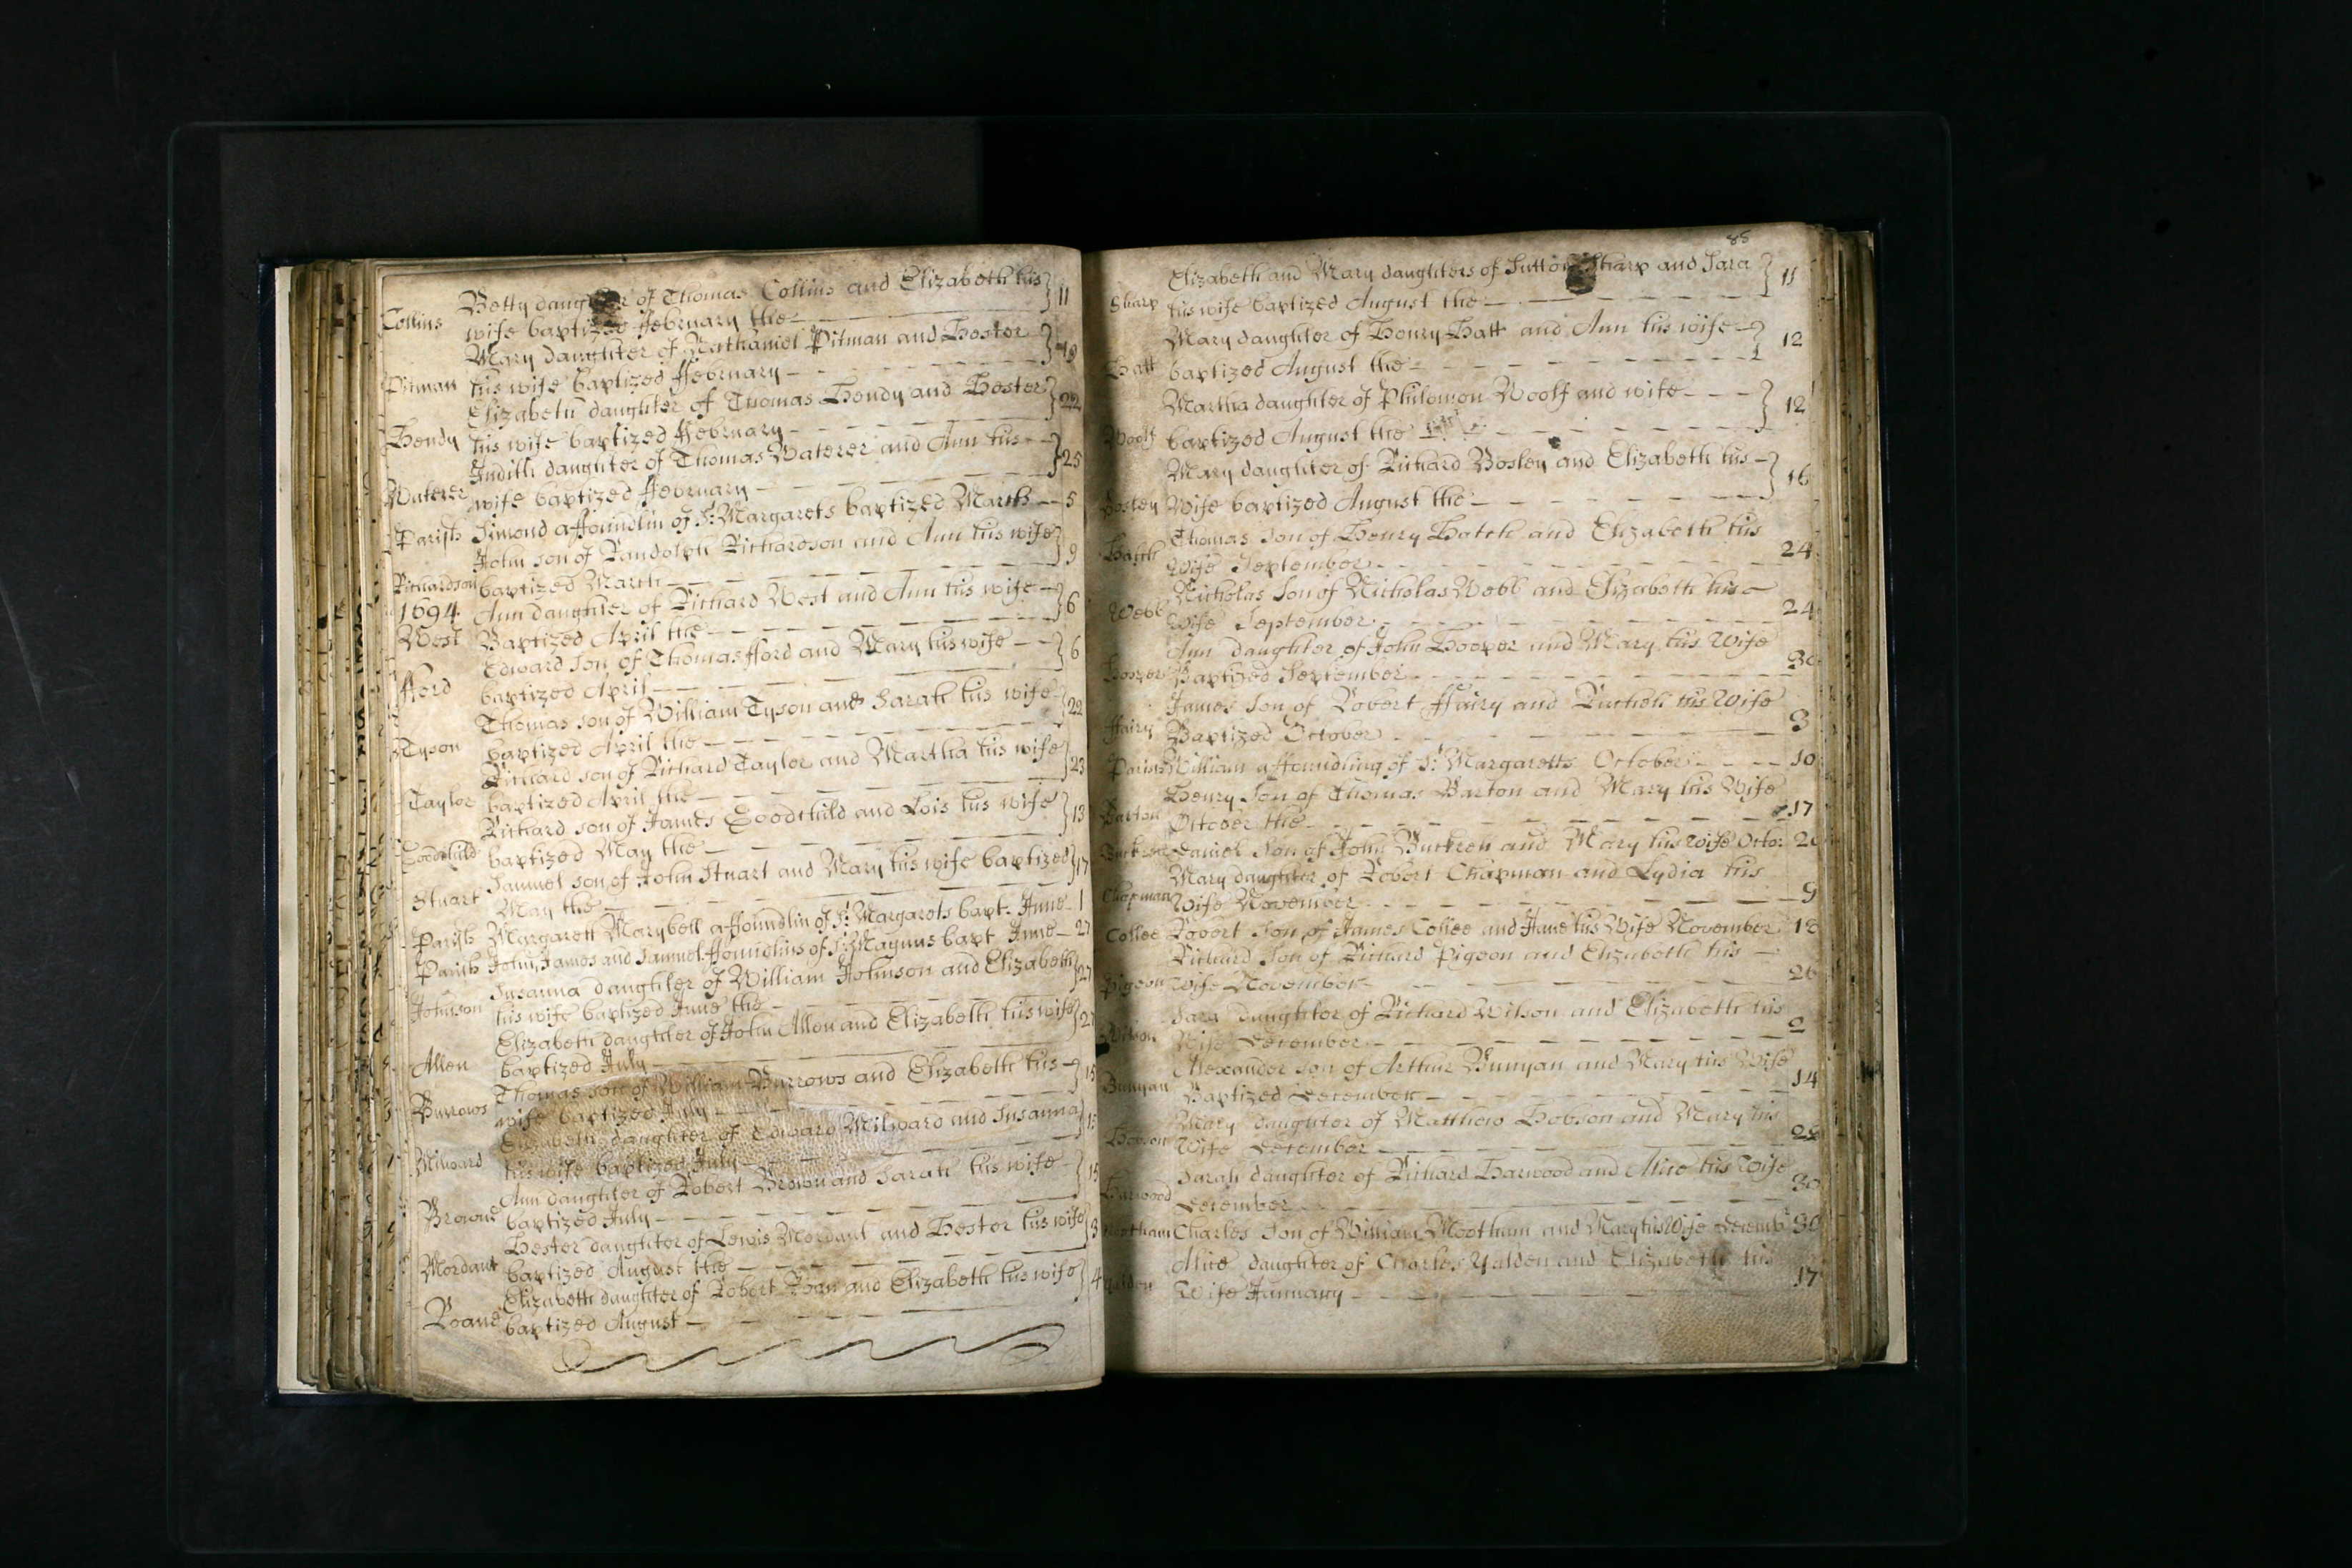 Betty daughter of Thomas Collins and Elizabeth his } 11
Collins wife baptized ffebruary the
Mary daughter of Nathaniel Pitman and Hester }
Pitman his wife baptized ffebruary
Elizabeth daughter of Thomas Hendy and Hester } 22
Hendy his wife baptized ffebruary
Judith daughter of Thomas Waterer and Ann his } 25
Waterer wife baptized ffebruary
Parish Simond a ffoundlin of St. Margarets baptized March 5
John son of Randolph Richardson and Ann his wife } 9
Richardson baptized March
1694 Ann daughter of Richard West and Ann his wife } 6
West Baptized April the
Edward Son of Thomas fford and Mary his wife } 6
fford baptized April
Thomas son of William Tyson and Sarah his wife } 22
Tyson baptized April the
Richard son of Richard Taylor and Martha his wife } 23
Taylor baptized April the
Richard son of James Goodchild and Lois his wife } 13
Goodchild baptized May the
Samuel son of John Stuart and Mary his wife baptized } 17
Stuart May the
Parish Margarett Marybell a ffoundlin of St. Margarets bapt. June 1
Parish John, James and Samuel ffoundlins of St. Magnus bapt June 27
Susanna daughter of William Johnson and Elizabeth } 27
Johnson his wife baptized June the
Elizabeth daughter of John Allen and Elizabeth his wife }
Allen baptized July
Thomas son of William Burrows and Elizabeth his } 15
Burrows wife baptized July
Elizabeth daughter of Edward Milward and Susanna }
Milward his wife baptized July
Ann daughter of Robert Brown and Sarah his wife } 15
Browne baptized July
Hester daughter of Lewis Mordant and Hester his wife } 3
Mordant baptized August the
Elizabeth daughter of Robert Roan and Elizabeth his wife } 4
Roane baptized August
85
Elizabeth and Mary daughters of Sutton Sharp and Sara } 11
Sharp his wife baptized August the
Mary daughter of Henry Hatt and Ann his wife } 12
Hatt baptized August the
Martha daughter of Philomon Woolf and wife } 12
Woolf baptized August the
Mary daughter of Richard Bosley and Elizabeth his } 16
Bosley Wife baptized August the
Thomas Son of Henry Hatch and Elizabeth his
Hatch Wife September 24
Nicholas Son of Nicholas Webb and Elizabeth his
Webb Wife September 24
Ann daughter of John Hooper and Mary his Wife
Hooper Baptized September 30
James Son of Robert ffairy and Rachell his Wife
ffairy Baptized October 3
Parish William a ffoundling of St. Margaretts October 10
Henry Son of Thomas Barton and Mary his Wife
Barton October the 17
Daniel Son of John and Mary his Wife Octo:
Mary daughter of Robert Chapman and Lydia his
Chapman Wife November 9
Collee Robert Son of James Collee and Jane his Wife November 18
Richard Son of Richard Pigeon and Elizabeth his
Pigeon Wife November 26
Sara daughter of Richard Wilson and Elizabeth his
Wilson Wife December 2
Alexander Son of Arthur Bunyan and Mary his Wife
Bunyan Baptized December 14
Mary daughter of Matthew Hobson and Mary his
Hobson Wife December
Sarah daughter of Richard Harwood and Alice his Wife
Harwood December 30
Charles Son of William Mootham and Mary his Wife Decemb 30
Alice daughter of Charles Yalden and Elizabeth his
Yalden Wife January 17